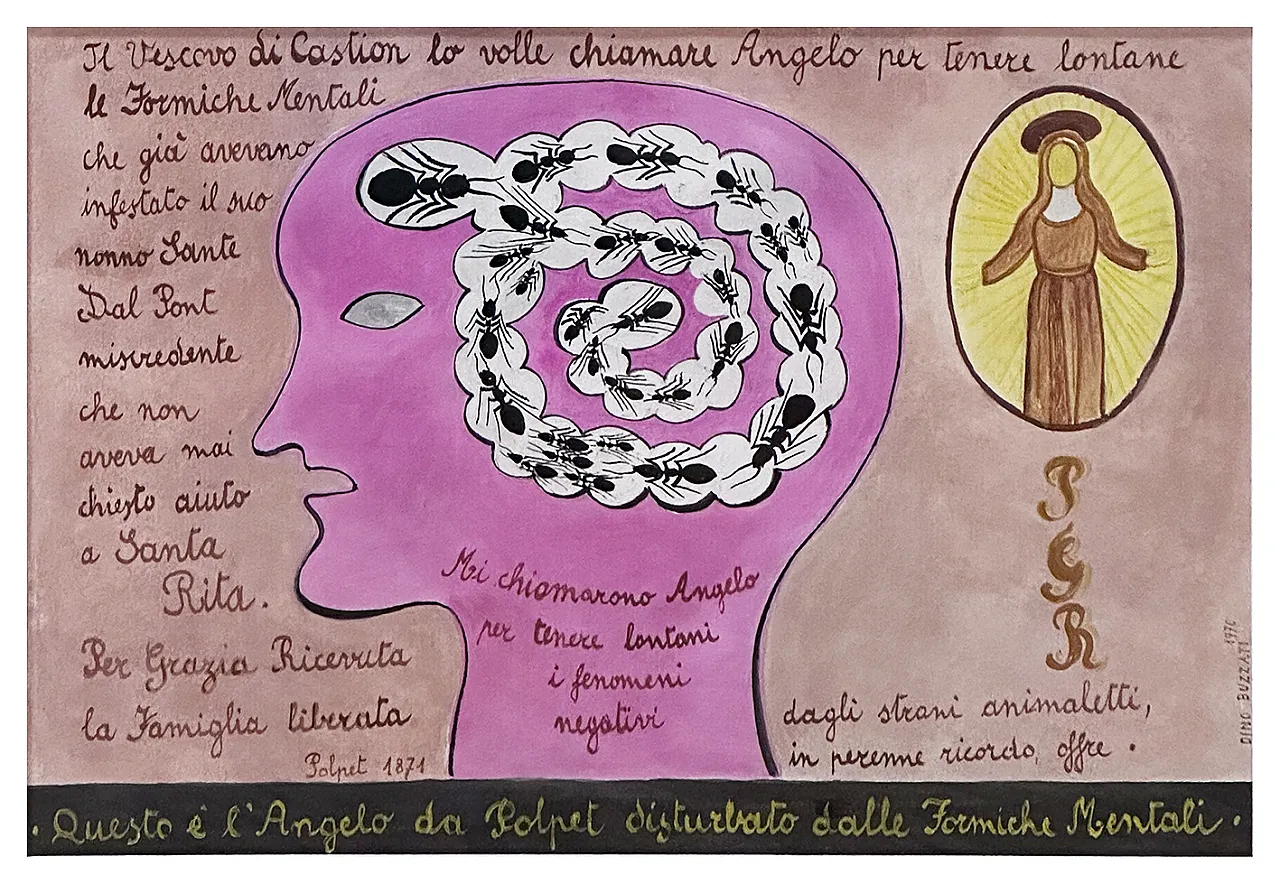 Il Vescovo di Castion lo volle chiamare Angelo per tenere lontane
le Formiche Mentali
che già avevano
infestato il suo
nonno Sante
Dal Pont
miscredente
che non
aveva mai
chiesto aiuto
a Santa
Rita.
Per Grazia Ricevuta
la Famiglia liberata
Polpet 1871
Mi chiamarono Angelo
per tenere lontani
i fenomeni
negativi
P
G
R
dagli strani animaletti,
in perenne ricordo, offre.
DINO BUZZATI 1970
. Questo è l'Angelo da Polpet disturbato dalle Formiche Mentali.